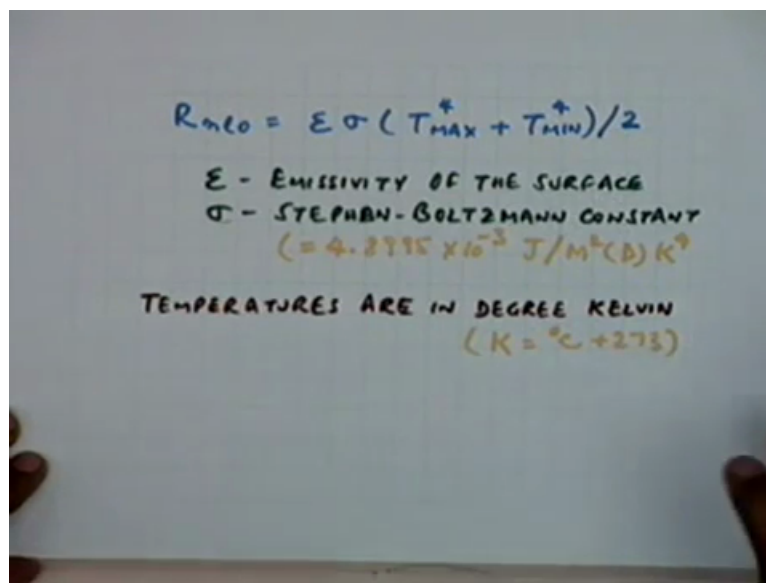 Rnlo = ε σ ( T⁴MAX + T⁴MIN ) / 2
ε - EMISSIVITY OF THE SURFACE
σ - STEPHAN-BOLTZMANN CONSTANT
(= 4.8995 × 10⁻³ J/M²(D) K⁴
TEMPERATURES ARE IN DEGREE KELVIN
( K = °C + 273)